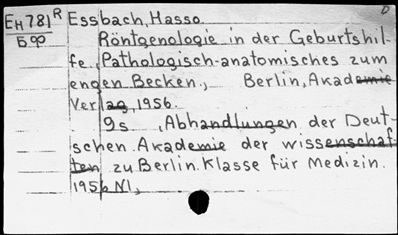 EH781R Essbach, Hasso D
Б90 Röntgenologie in der Geburtshil-
fe, Pathologisch-anatomisches zum
engen Becken., Berlin, Akademie
Verlag, 1956.
9s ,Abhandlungen der Deut-
schen Akademie der wissenschaf-
ten zu Berlin. Klasse für Medizin.
1956 N1,